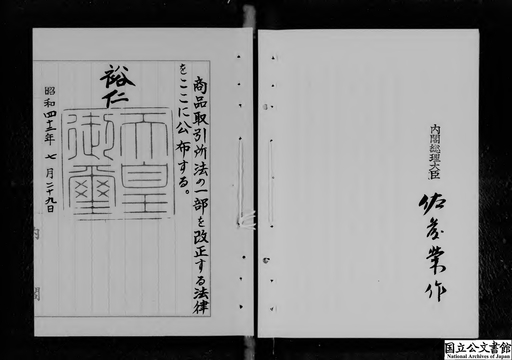 商品取引所法の一部を改正する法律
をここに公布する。
裕仁
天皇
御璽
昭和四十二年七月二十九日
内閣
内閣総理大臣
佐藤榮作
国立公文書館
National Archives of Japan